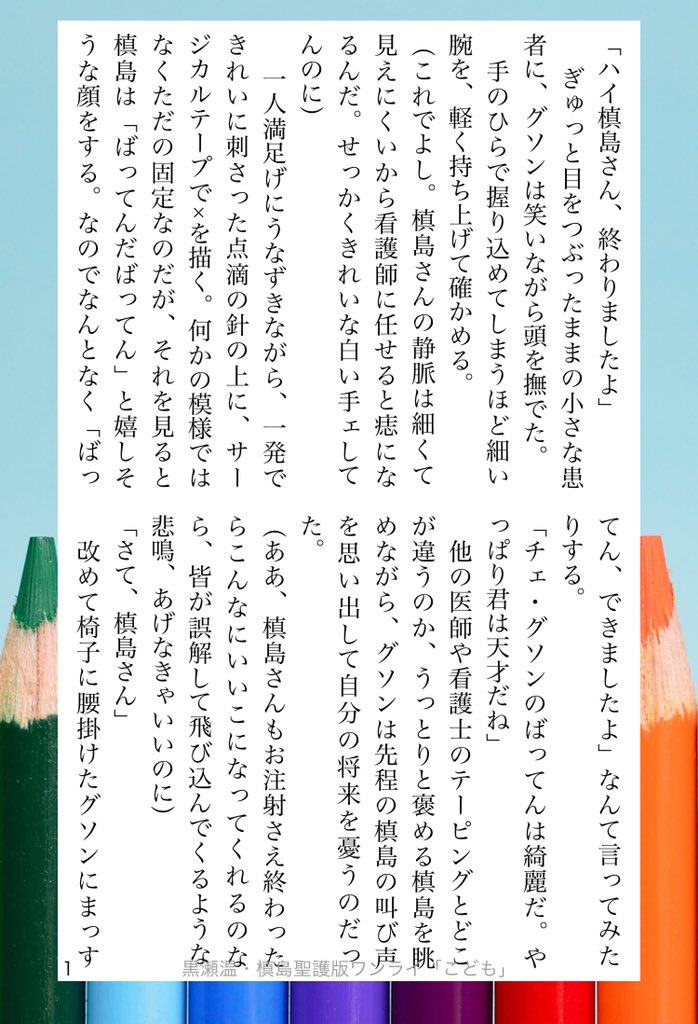 「ハイ槙島さん、終わりましたよ」
　ぎゅっと目をつぶったままの小さな患
者に、グソンは笑いながら頭を撫でた。
　手のひらで握り込めてしまうほど細い
腕を、軽く持ち上げて確かめる。
（これでよし。槙島さんの静脈は細くて
見えにくいから看護師に任せると痣にな
るんだ。せっかくきれいな白い手ェして
んのに）
　一人満足げにうなずきながら、一発で
きれいに刺さった点滴の針の上に、サー
ジカルテープで×を描く。何かの模様では
なくただの固定なのだが、それを見ると
槙島は「ばってんだばってん」と嬉しそ
うな顔をする。なのでなんとなく「ばっ
てん、できましたよ」なんて言ってみた
りする。
「チェ・グソンのばってんは綺麗だ。や
っぱり君は天才だね」
　他の医師や看護士のテーピングとどこ
が違うのか、うっとりと褒める槙島を眺
めながら、グソンは先程の槙島の叫び声
を思い出して自分の将来を憂うのだっ
た。
（ああ、槙島さんもお注射さえ終わった
らこんなにいいこになってくれるのな
ら、皆が誤解して飛び込んでくるような
悲鳴、あげなきゃいいのに）
「さて、槙島さん」
　改めて椅子に腰掛けたグソンにまっす
1
黒瀬温・槙島聖護版ワンライ「こども」